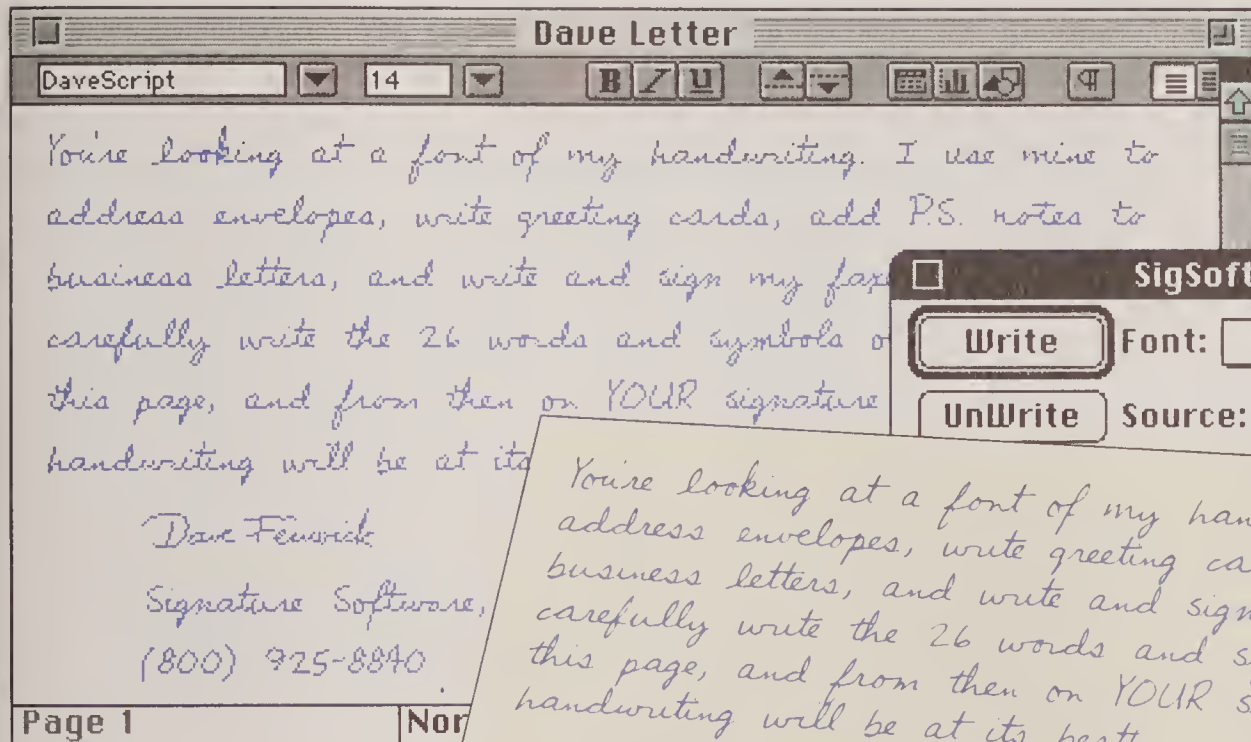 Dave Letter
DaveScript 14 B I U ¶
You're looking at a font of my handwriting. I use mine to
address envelopes, write greeting cards, add P.S. notes to
business letters, and write and sign my faxe
carefully write the 26 words and symbols o
this page, and from then on YOUR signature
handwriting will be at its
Dave Fenwick
Signature Software,
(800) 925-8840
Page 1 Nor
SigSoft
Write Font:
UnWrite Source:
You're looking at a font of my han
address envelopes, write greeting ca
business letters, and write and sign
carefully write the 26 words and s
this page, and from then on YOUR s
handwriting will be at its best!